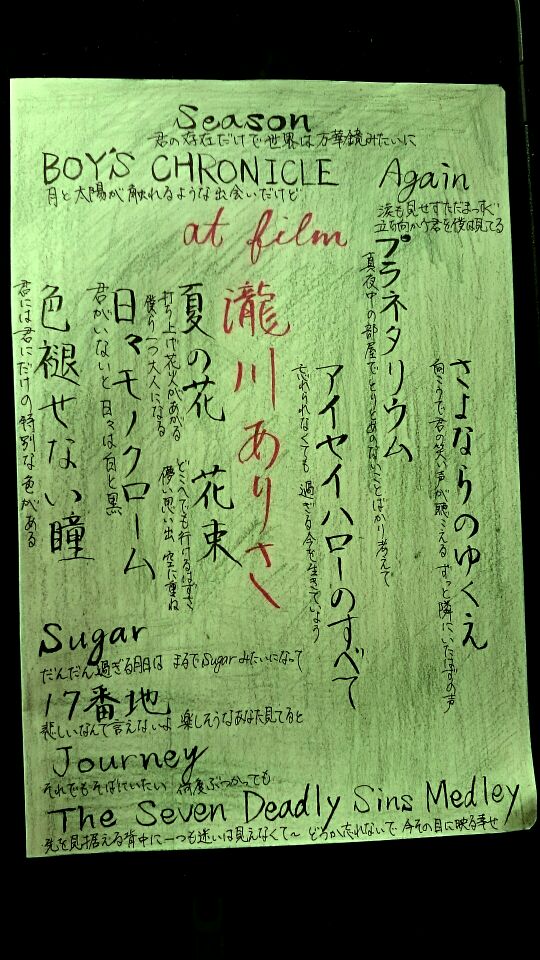 Season
君の存在だけで世界は万華鏡みたいに
BOY'S CHRONICLE
月と太陽が触れるような出会いだけど
Again
涙も見せずただまっすぐ
立ち向かう君を僕は見てる
at film
瀧川ありさ
さよならのゆくえ
向こうで君の笑い声が聴こえる ずっと隣にいたはずの声
プラネタリウム
真夜中の部屋でとりとめのないことばかり考えて
アイセイハローのすべて
忘れられなくても 過ぎる今を生きていよう
夏の花
打ち上げ花火があがる
僕ら一つ大人になる
花束
どこへでも行けるはずさ
儚い思い出 空に重ね
日々モノクローム
君がいないと日々は白と黒
色褪せない瞳
君には君にだけの特別な色がある
Sugar
だんだん過ぎる月日は まるでSugarみたいになって
17番地
悲しいなんて言えないよ 楽しそうなあなた見てると
Journey
それでもそばにいたい 何度ぶつかっても
The Seven Deadly Sins Medley
先を見据える背中に一つも迷いは見えなくて〜 どうか忘れないで 今その目に映る幸せ